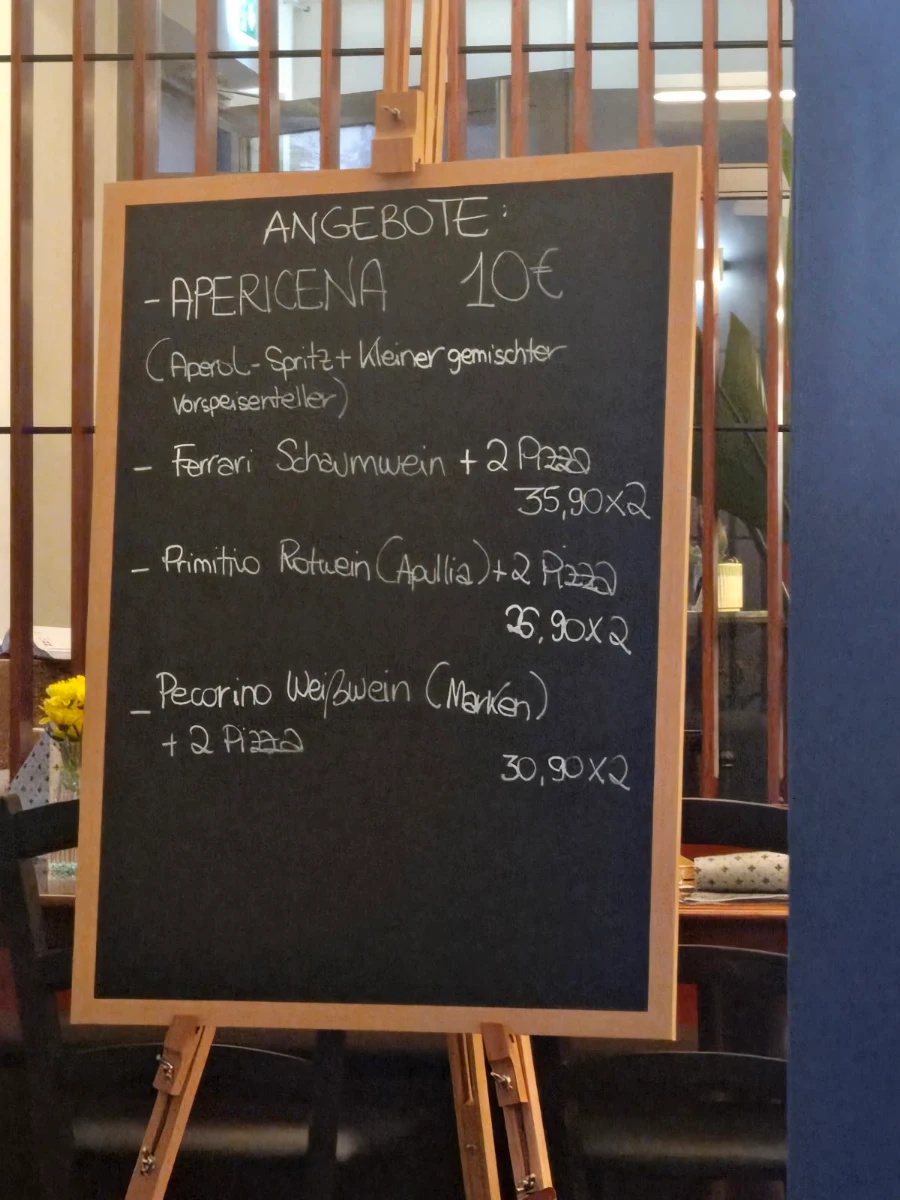 ANGEBOTE:
- APERICENA 10€
(Aperol-Spritz + Kleiner gemischter
Vorspeisenteller)
- Ferrari Schaumwein + 2 Pizza
35,90x2
- Primitivo Rotwein (Apullia) + 2 Pizza
26,90x2
- Pecorino Weißwein (Marken)
+ 2 Pizza
30,90x2